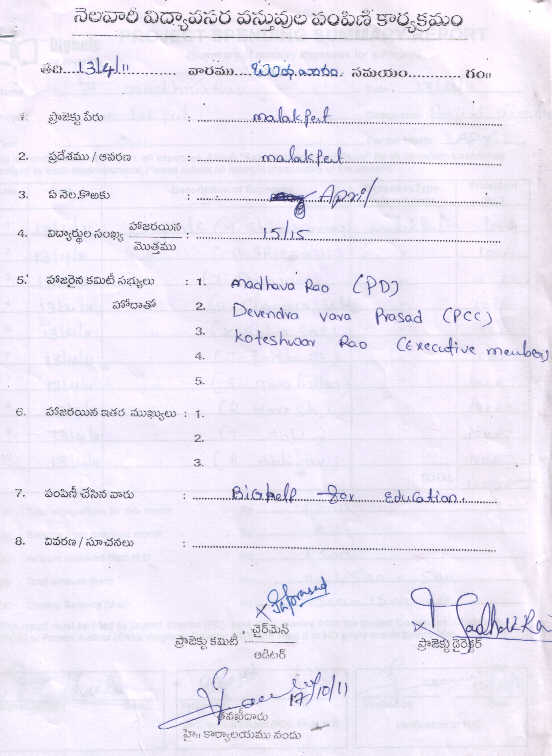 నెలవారీ విద్యావసర వస్తువుల పంపిణీ కార్యక్రమం
తేది....13/4/11............ వారము....బుధవారం. సమయం............. గం॥
1. ప్రాజెక్టు పేరు : malakpet
2. ప్రదేశము / ఆవరణ : malakpet
3. ఏ నెల కొఱకు : April
4. విద్యార్థుల సంఖ్య హాజరయిన / మొత్తము : 15/15
5. హాజరైన కమిటీ సభ్యులు : 1. Madhava Rao (PD)
హోదాతో 2. Devendra vara Prasad (PCC)
3. Koteshwar Rao (Executive member)
4.
5.
6. హాజరయిన ఇతర ముఖ్యులు : 1.
2.
3.
7. పంపిణీ చేసిన వారు : Bighelp for Education.
8. వివరణ / సూచనలు :
x
ప్రాజెక్టు కమిటీ చైర్‌మెన్
ఆడిటర్
x
ప్రాజెక్టు డైరెక్టర్
17/10/11
తనఖీదారు
హై॥ కార్యాలయము నందు